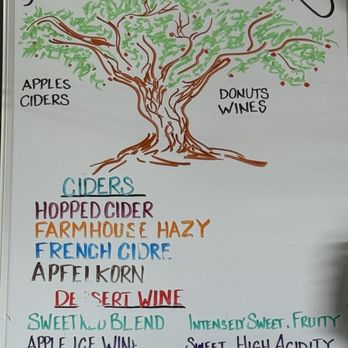 APPLES
CIDERS
DONUTS
WINES
CIDERS
HOPPED CIDER
FARMHOUSE HAZY
FRENCH CIDRE
APFELKORN
DESSERT WINE
SWEET RED BLEND INTENSELY SWEET, FRUITY
APPLE ICE WINE SWEET, HIGH ACIDITY